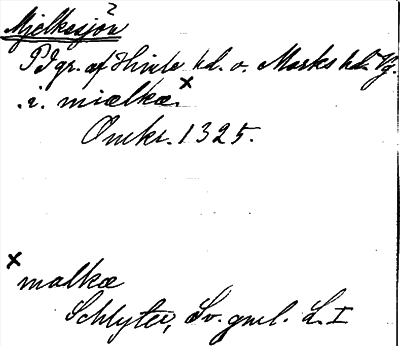 Mjelkesjön ?
På gr. af Hinle hd. o. Marks hd. Vg.
.i. miælkæ. x
Omkr. 1325.
x malkæ
Schlyter, Sv. gml. L. I